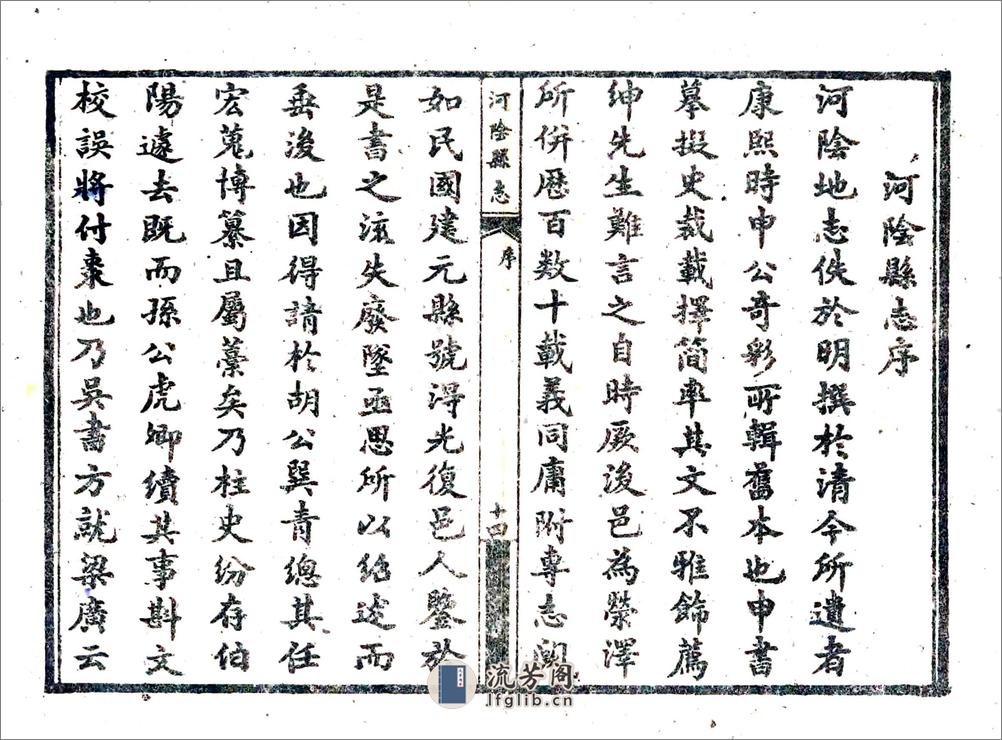 河陰縣志序
河陰地志佚於明撰於清今所遺者
康熙時申公奇彩所輯舊本也申書
摹擬史裁載擇簡率其文不雅飾薦
紳先生難言之自時厥後邑為滎澤
所併歷百數十載義同庸附專志闕
河陰縣志
序
十四
如民國建元縣號淂光復邑人鑒於
是書之流失廢墜亟思所以紹述而
垂後也因得請於胡公巽青總其任
宏蒐博纂且屬藁矣乃柱史紛存伯
陽遽去既而孫公虎卿續其事斟文
校誤將付棗也乃吳書方就梁廣云
流芳阁
lfglib.cn